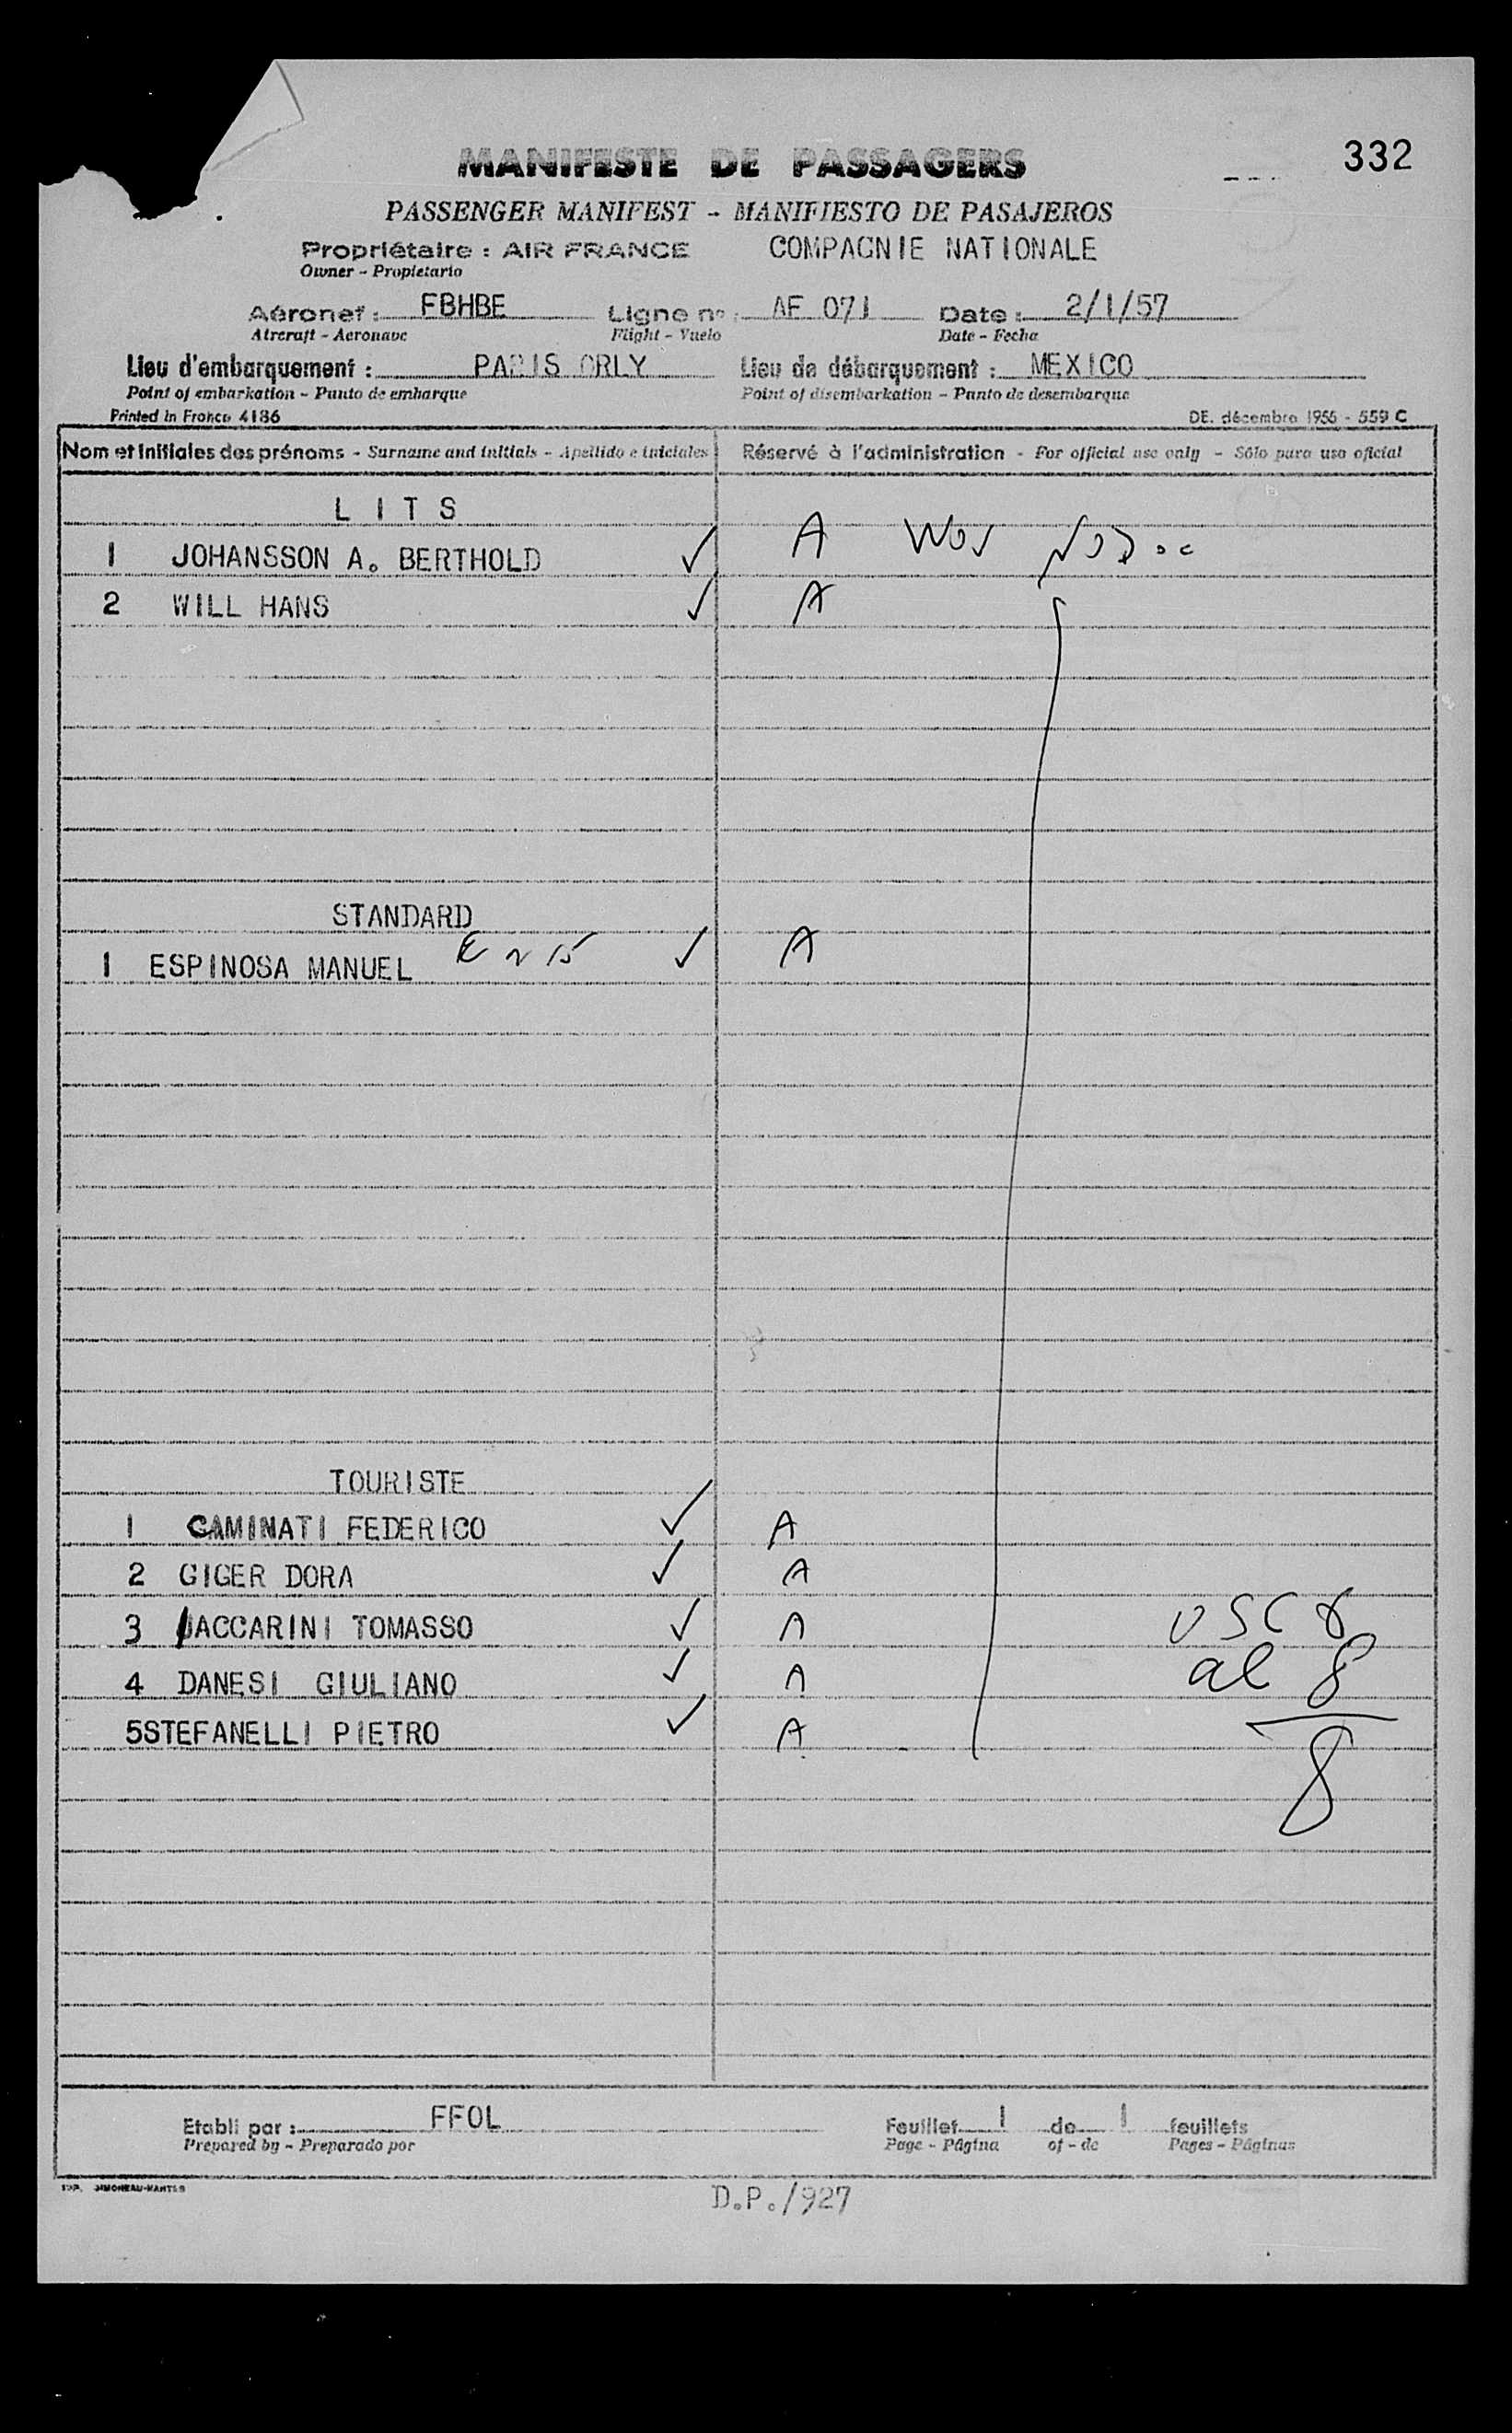 332
MANIFESTE DE PASSAGERS
PASSENGER MANIFEST - MANIFIESTO DE PASAJEROS
Propriétaire : AIR FRANCE COMPAGNIE NATIONALE
Owner - Propietario
Aéronef : FBHBE Ligne nº : AF 071 Date : 2/1/57
Aircraft - Aeronave Flight - Vuelo Date - Fecha
Lieu d'embarquement : PARIS ORLY Lieu de débarquement : MEXICO
Point of embarkation - Punto de embarque Point of disembarkation - Punto de desembarque
Printed in France 4186 DE. décembre 1955 - 559 C
Nom et initiales des prénoms - Surname and initials - Apellido e iniciales Réservé à l'administration - For official use only - Sólo para uso oficial
L I T S
1 JOHANSSON A. BERTHOLD ✓ A
2 WILL HANS ✓ A
STANDARD
1 ESPINOSA MANUEL ✓ A
TOURISTE
1 CAMINATI FEDERICO ✓ A
2 GIGER DORA ✓ A
3 ACCARINI TOMASSO ✓ A
4 DANESI GIULIANO ✓ A
al 8
5STEFANELLI PIETRO ✓ A
8
Etabli par : FFOL Feuillet 1 de 1 feuillets
Prepared by - Preparado por Page - Página of - de Pages - Páginas
IMP. SIMONEAU-NANTES
D.P./927